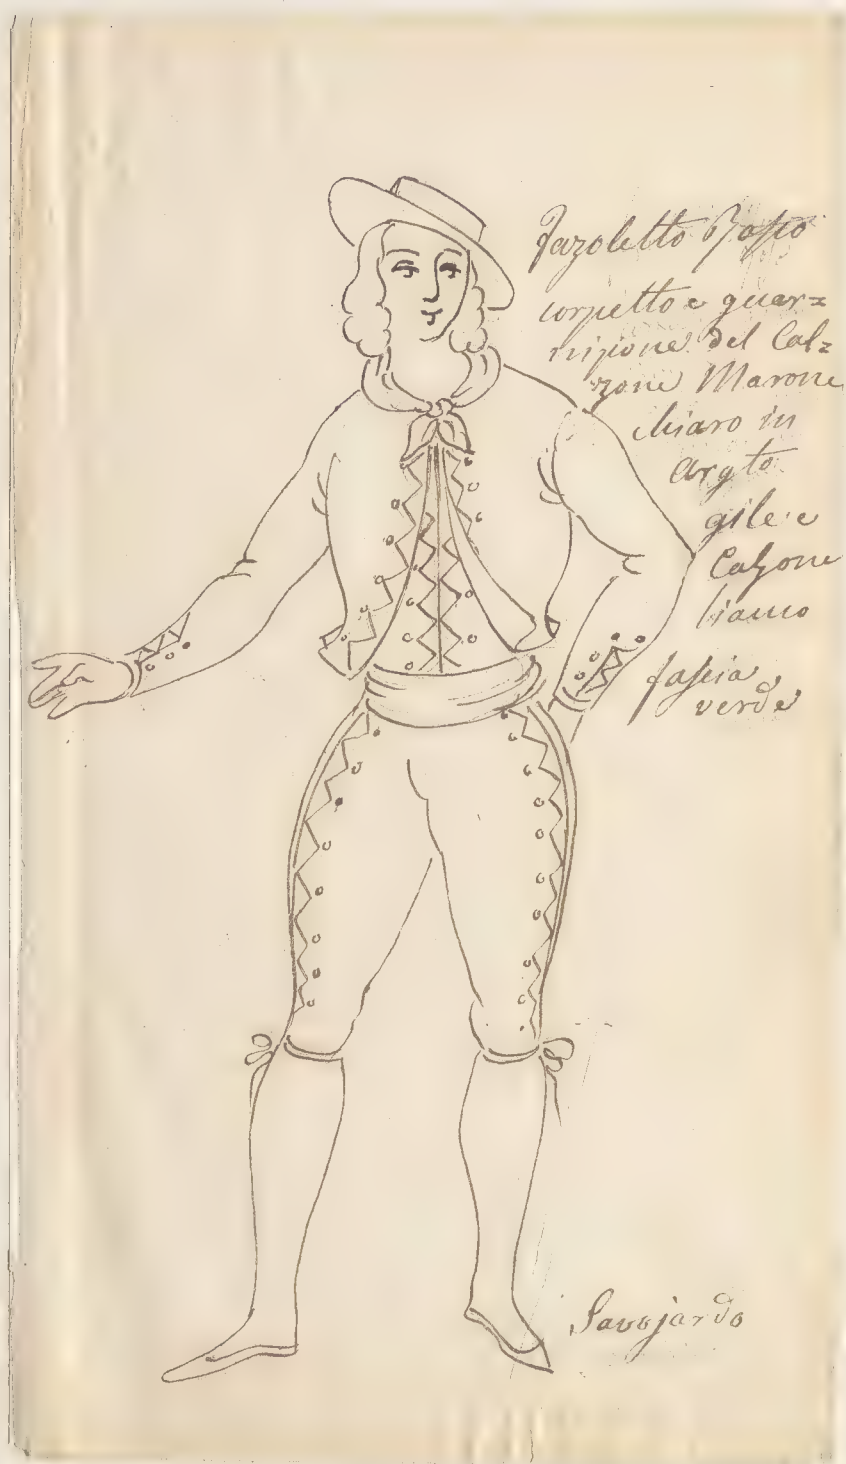 Fazoletto Rosso
corpetto e guar=
nizione del Cal=
zone Marone
chiaro in
Arg.to
gile e
Calzone
bianco
fascia
verde
Savojardo